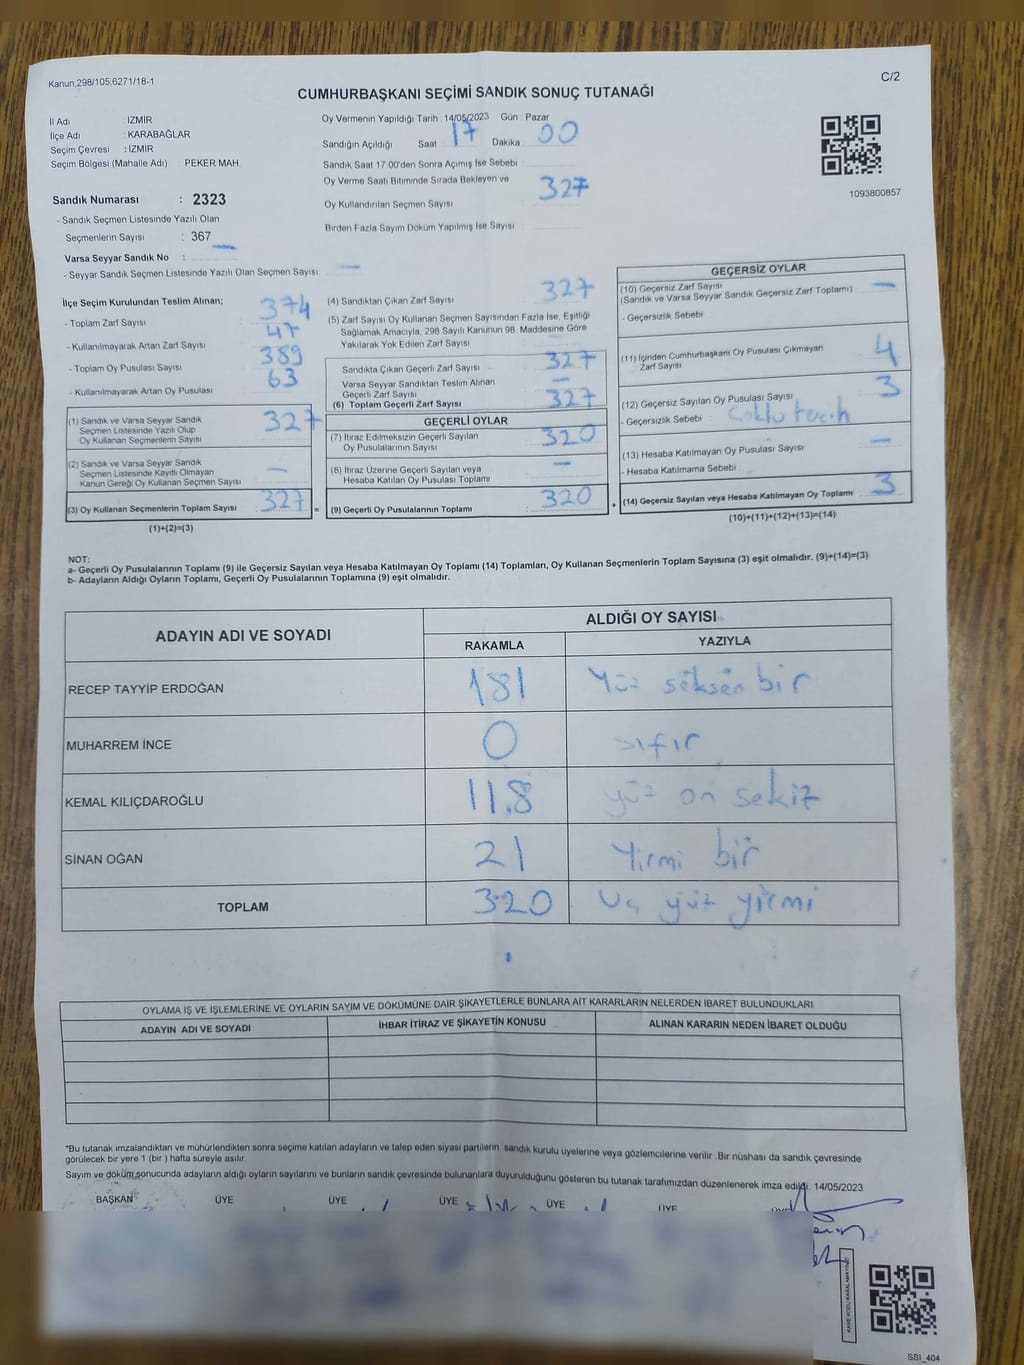 Kanun,298/105,6271/18-1
C/2
CUMHURBAŞKANI SEÇİMİ SANDIK SONUÇ TUTANAĞI
İl Adı : İZMİR
İlçe Adı : KARABAĞLAR
Seçim Çevresi : İZMİR
Seçim Bölgesi (Mahalle Adı) : PEKER MAH
Oy Vermenin Yapıldığı Tarih : 14/05/2023 Gün : Pazar
Sandığın Açıldığı Saat 17 Dakika 00
Sandık Saat 17:00'den Sonra Açımış İse Sebebi :
Oy Verme Saati Bitiminde Sırada Bekleyen ve
Oy Kullandırılan Seçmen Sayısı 327
Birden Fazla Sayım Döküm Yapılmış İse Sayısı :
1093800857
Sandık Numarası : 2323
- Sandık Seçmen Listesinde Yazılı Olan
Seçmenlerin Sayısı : 367
Varsa Seyyar Sandık No : —
- Seyyar Sandık Seçmen Listesinde Yazılı Olan Seçmen Sayısı: —
İlçe Seçim Kurulundan Teslim Alınan;
- Toplam Zarf Sayısı 374
- Kullanılmayarak Artan Zarf Sayısı 47
- Toplam Oy Pusulası Sayısı 389
- Kullanılmayarak Artan Oy Pusulası 63
(1) Sandık ve Varsa Seyyar Sandık
Seçmen Listesinde Yazılı Olup
Oy Kullanan Seçmenlerin Sayısı 327
(2) Sandık ve Varsa Seyyar Sandık
Seçmen Listesinde Kayıtlı Olmayan
Kanun Gereği Oy Kullanan Seçmen Sayısı —
(3) Oy Kullanan Seçmenlerin Toplam Sayısı 327 =
(1)+(2)=(3)
(4) Sandıktan Çıkan Zarf Sayısı 327
(5) Zarf Sayısı Oy Kullanan Seçmen Sayısından Fazla İse, Eşitliği
Sağlamak Amacıyla, 298 Sayılı Kanunun 98. Maddesine Göre
Yakılarak Yok Edilen Zarf Sayısı
Sandıkta Çıkan Geçerli Zarf Sayısı 327
Varsa Seyyar Sandıktan Teslim Alınan
Geçerli Zarf Sayısı —
(6) Toplam Geçerli Zarf Sayısı 327
GEÇERLİ OYLAR
(7) İtiraz Edilmeksizin Geçerli Sayılan
Oy Pusulalarının Sayısı 320
(8) İtiraz Üzerine Geçerli Sayılan veya
Hesaba Katılan Oy Pusulası Toplamı —
(9) Geçerli Oy Pusulalarının Toplamı 320 +
GEÇERSİZ OYLAR
(10) Geçersiz Zarf Sayısı
(Sandık ve Varsa Seyyar Sandık Geçersiz Zarf Toplamı) —
- Geçersizlik Sebebi
(11) İçinden Cumhurbaşkanı Oy Pusulası Çıkmayan
Zarf Sayısı 4
(12) Geçersiz Sayılan Oy Pusulası Sayısı 3
- Geçersizlik Sebebi :
(13) Hesaba Katılmayan Oy Pusulası Sayısı —
- Hesaba Katılmama Sebebi :
(14) Geçersiz Sayılan veya Hesaba Katılmayan Oy Toplamı 3
(10)+(11)+(12)+(13)=(14)
NOT:
a- Geçerli Oy Pusulalarının Toplamı (9) ile Geçersiz Sayılan veya Hesaba Katılmayan Oy Toplamı (14) Toplamları, Oy Kullanan Seçmenlerin Toplam Sayısına (3) eşit olmalıdır. (9)+(14)=(3)
b- Adayların Aldığı Oyların Toplamı, Geçerli Oy Pusulalarının Toplamına (9) eşit olmalıdır.
ADAYIN ADI VE SOYADI
ALDIĞI OY SAYISI
RAKAMLA YAZIYLA
RECEP TAYYİP ERDOĞAN 181 Yüz seksen bir
MUHARREM İNCE 0 sıfır
KEMAL KILIÇDAROĞLU 118 yüz on sekiz
SİNAN OĞAN 21 Yirmi bir
TOPLAM 320 Üç yüz yirmi
OYLAMA İŞ VE İŞLEMLERİNE VE OYLARIN SAYIM VE DÖKÜMÜNE DAİR ŞİKAYETLERLE BUNLARA AİT KARARLARIN NELERDEN İBARET BULUNDUKLARI
ADAYIN ADI VE SOYADI İHBAR İTİRAZ VE ŞİKAYETİN KONUSU ALINAN KARARIN NEDEN İBARET OLDUĞU
*Bu tutanak imzalandıktan ve mühürlendikten sonra seçime katılan adayların ve talep eden siyasi partilerin sandık kurulu üyelerine veya gözlemcilerine verilir .Bir nüshası da sandık çevresinde
görülecek bir yere 1 (bir) hafta süreyle asılır.
Sayım ve döküm sonucunda adayların aldığı oyların sayılarını ve bunların sandık çevresinde bulunanlara duyurulduğunu gösteren bu tutanak tarafımızdan düzenlenerek imza edildi. 14/05/2023
BAŞKAN ÜYE ÜYE ÜYE ÜYE ÜYE ÜYE
SSİ_404